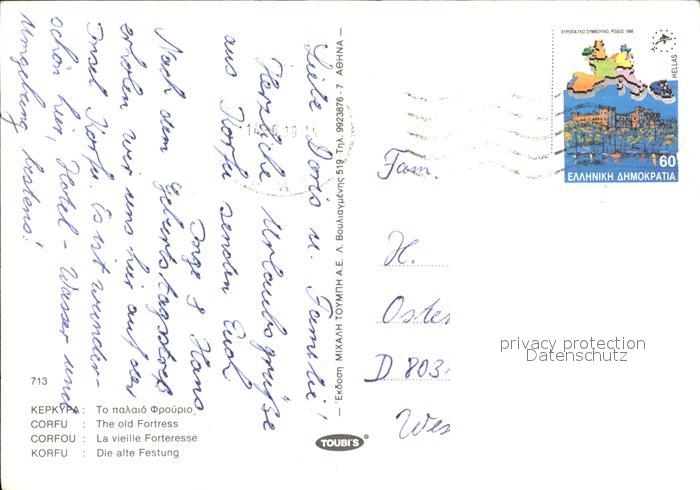 Liebe Doris u. Familie!
Herzliche Urlaubsgrüße
aus Korfu senden Euch
Inge & Hans
Nach dem Geburtstagsstreß
erholen wir uns hier auf der
Insel Korfu. Es ist wunder-
schön hier, Hotel - Wasser und
Umgebung bestens!
Fam.
H.
Oste
D 803
Wes
ΕΥΡΩΠΑΪΚΟ ΣΥΜΒΟΥΛΙΟ, ΡΟΔΟΣ 1988
HELLAS
60
ΕΛΛΗΝΙΚΗ ΔΗΜΟΚΡΑΤΙΑ
Έκδοση ΜΙΧΑΛΗ ΤΟΥΜΠΗ Α.Ε. Λ. Βουλιαγμένης 519 Τηλ. 9923876 - 7 ΑΘΗΝΑ
privacy protection
Datenschutz
713
ΚΕΡΚΥΡΑ : Το παλαιό Φρούριο
CORFU : The old Fortress
CORFOU : La vieille Forteresse
KORFU : Die alte Festung
TOUBI'S